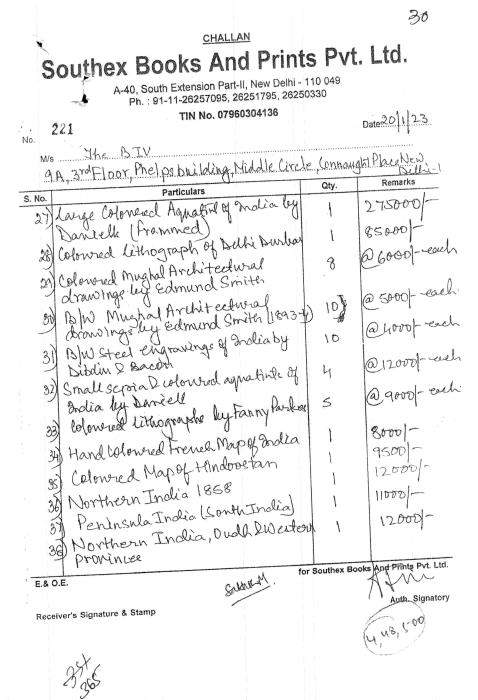 30
CHALLAN
Southex Books And Prints Pvt. Ltd.
A-40, South Extension Part-II, New Delhi - 110 049
Ph. : 91-11-26257095, 26251795, 26250330
TIN No. 07960304136
No. 221 Date 20/1/23
M/s The BIV
9A, 3rd Floor, Phelps building, Middle Circle, Connaught Place New Delhi-1
S. No. Particulars Qty. Remarks
27) Large Coloured Aquatint of India by Daniell (Frammed) 1 275000/-
28) Coloured Lithograph of Delhi Durbar 1 85000/-
29) Coloured Mughal Architectural drawings by Edmund Smith 8 @6000/- each
30) B/W Mughal Architectural drawings by Edmund Smith (1893-4) 10 @5000/- each
31) B/W Steel engravings of India by Dibdin & Bacon 10 @4000/- each
32) Small sepia & coloured aquatints of India by Daniell 4 @12000/- each
33) Coloured Lithographs by Fanny Parkes 5 @9000/- each
34) Hand Coloured French Map of India 1 8000/-
35) Coloured Map of Hindoostan 1 9500/-
36) Northern India 1858 1 12000/-
37) Peninsula India (South India) 1 11000/-
38) Northern India, Oudh & Western Province 1 12000/-
E.& O.E. for Southex Books And Prints Pvt. Ltd.
Auth. Signatory
Receiver's Signature & Stamp
365